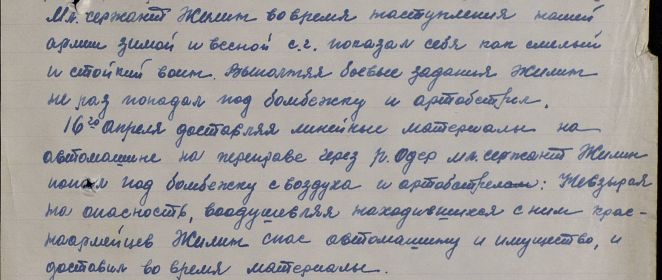 Мл. сержант Жилин во время наступления нашей
армии зимой и весной с.г. показал себя как смелый
и стойкий воин. Выполняя боевые задания Жилин
не раз попадал под бомбежку и артобстрел.
16го апреля доставляя линейные материалы на
автомашине на переправе через р. Одер мл. сержант Жилин
попал под бомбежку с воздуха и артобстрелом: Невзырая
на опасность, воодушевляя находившихся с ним крас-
ноармейцев Жилин спас автомашину и имущество, и
доставил во время материалы.